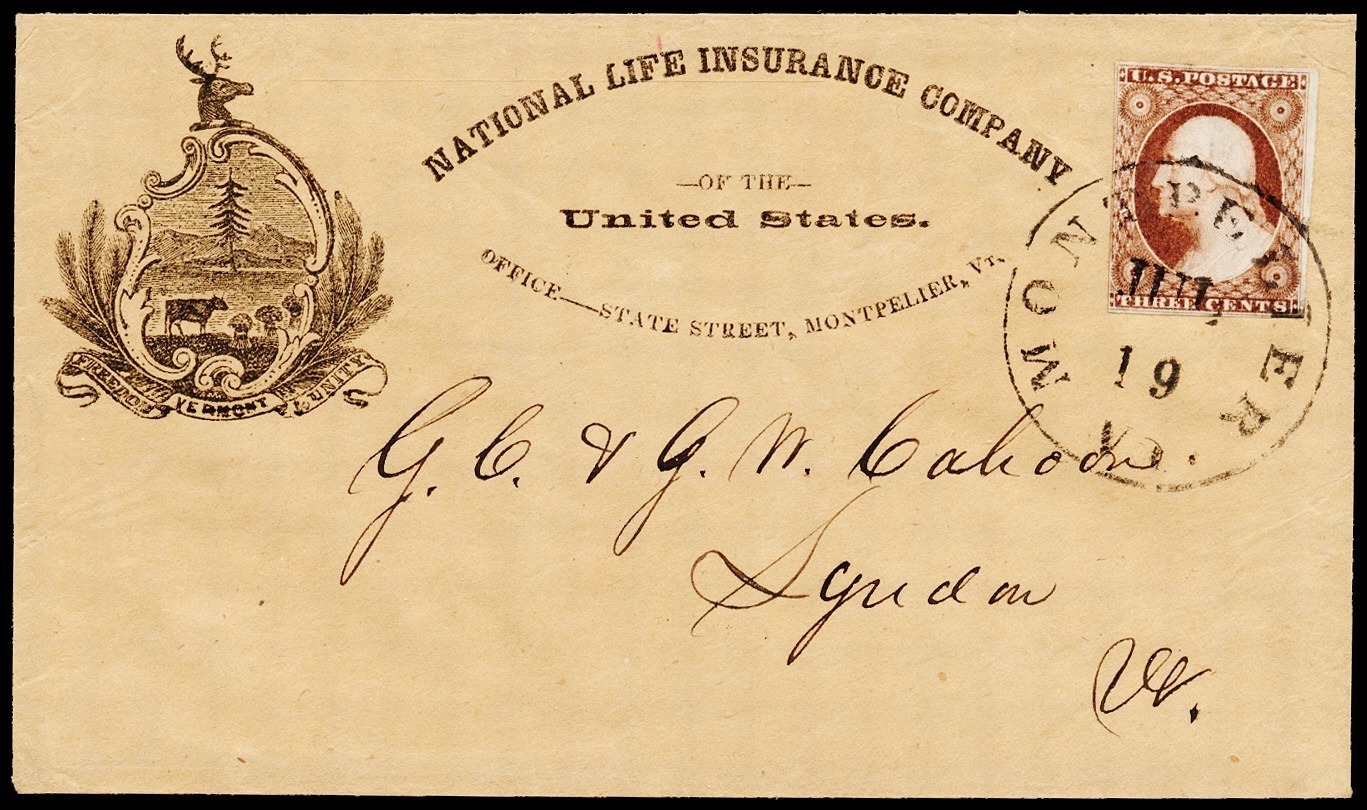 NATIONAL LIFE INSURANCE COMPANY
—OF THE—
United States.
OFFICE—STATE STREET, MONTPELIER, VT.
FREEDOM VERMONT & UNITY
U.S. POSTAGE
THREE CENTS
MONTPELIER
JUL
19
Vt.
G. C. & G. W. Cahoon.
Lyndon
Vt.